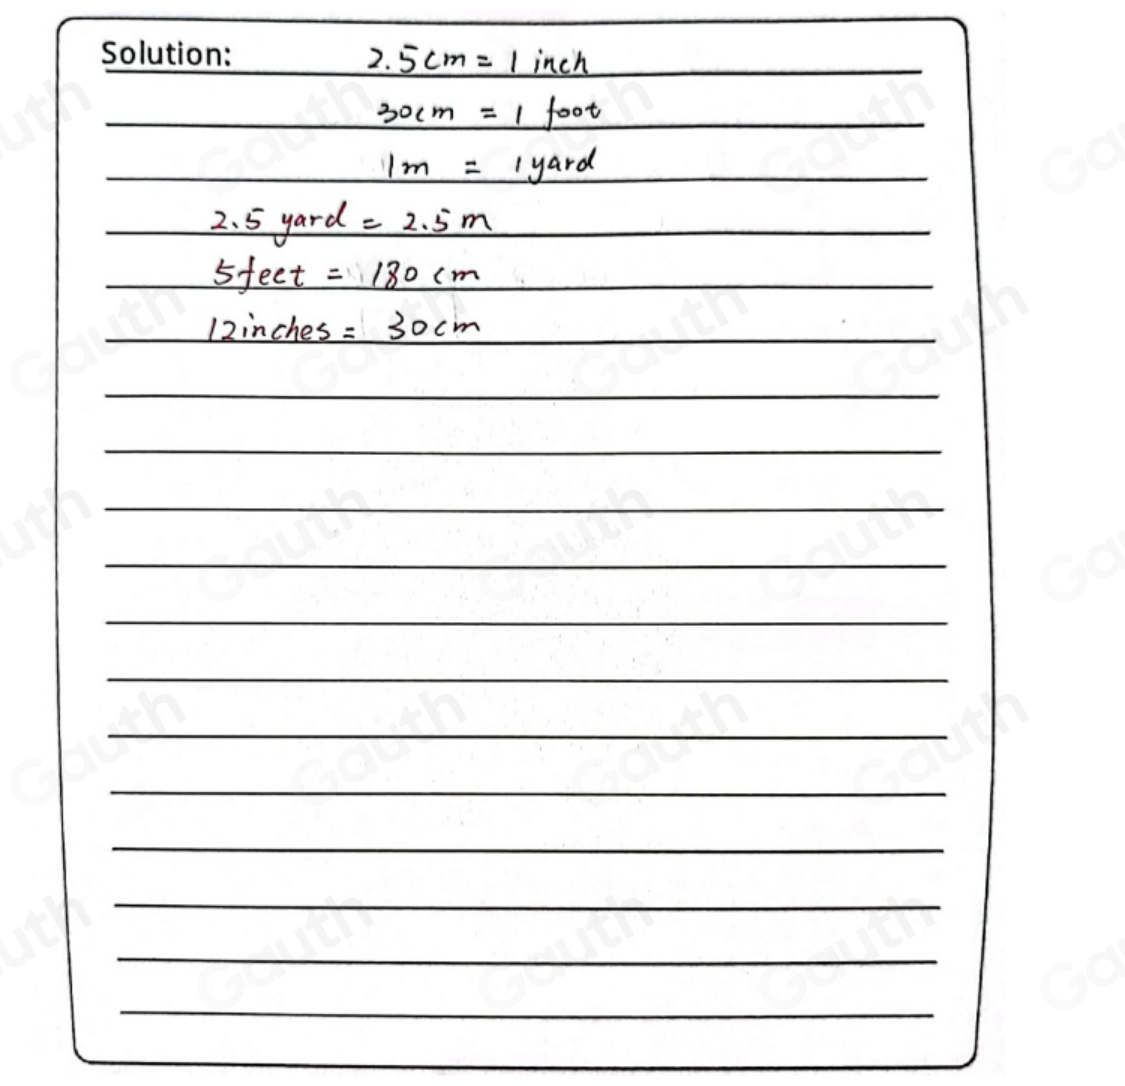 Solution: 2.5cm = 1 inch
30cm = 1 foot
1m = 1 yard
2.5 yard = 2.5 m
5feet = 180 cm
12inches = 30cm
Gauth